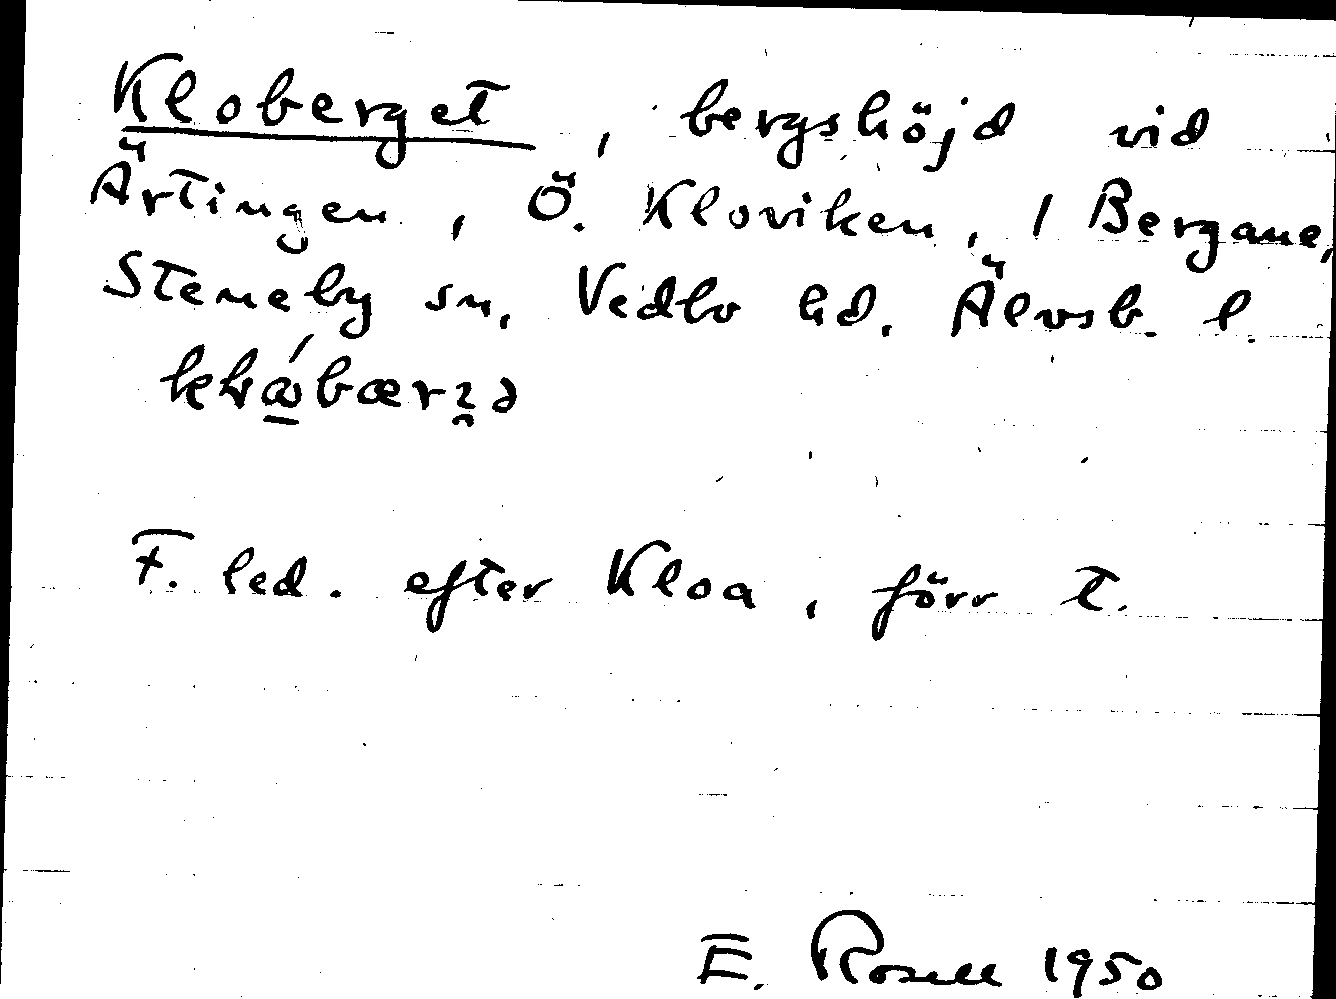 Kloberget, bergshöjd vid
Ärtingen, Ö. Kloviken, / Bergane,
Steneby sn, Vedbo hd. Älvsb. l.
F. led. efter Kloa, förr t.
E. Rosell 1950